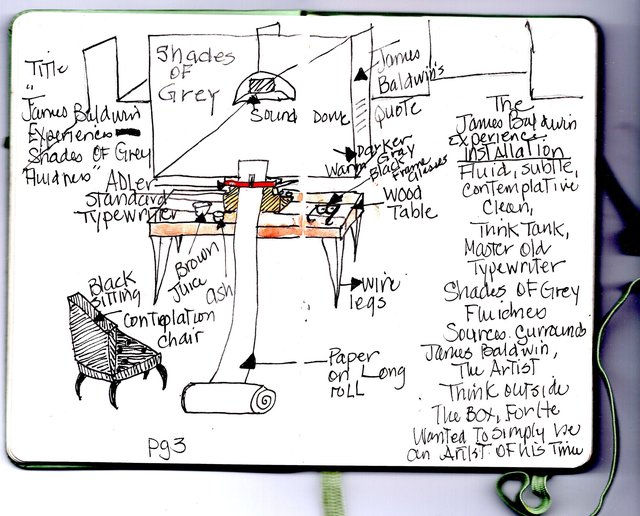 Title
"
James Baldwin
Experiences
Shades of Grey
Fluidness"
Shades
of
Grey
Sound Dome
James
Baldwin's
Quote
Darker
Gray
Warm
Black
Frame
glasses
Wood
Table
ADLer
Standard
Typewriter
Brown
Juice
ash
Wire
legs
Black
Sitting
Contemplation
chair
Paper
on Long
roll
pg3
The
James Baldwin
Experience
Installation
Fluid, subtle,
contemplative
Clean,
Think Tank,
Master Old
Typewriter
Shades of Grey
Fluidnes
Sources. Surrounds
James Baldwin,
The Artist
Think outside
The Box, For He
Wanted To Simply be
an Artist of His Time